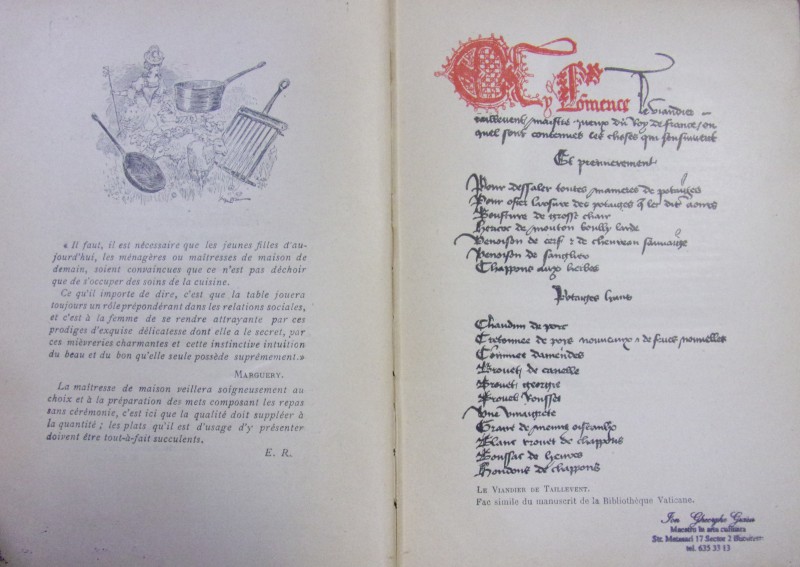 « Il faut, il est nécessaire que les jeunes filles d'au-
jourd'hui, les ménagères ou maîtresses de maison de
demain, soient convaincues que ce n'est pas déchoir
que de s'occuper des soins de la cuisine.
Ce qu'il importe de dire, c'est que la table jouera
toujours un rôle prépondérant dans les relations sociales,
et c'est à la femme de se rendre attrayante par ces
prodiges d'exquise délicatesse dont elle a le secret, par
ces mièvreries charmantes et cette instinctive intuition
du beau et du bon qu'elle seule possède suprêmement.»
MARGUERY.
La maîtresse de maison veillera soigneusement au
choix et à la préparation des mets composant les repas
sans cérémonie, c'est ici que la qualité doit suppléer à
la quantité ; les plats qu'il est d'usage d'y présenter
doivent être tout-à-fait succulents.
E. R.
Cy Comence
Le viandier
taillevent maistre queux du Roy de france / ou
quel sont contenues les choses qui sensuivent
Et premierement
Pour dessaler toutes manieres de potaiges
Pour oster larsure des potaiges
Bouliture de grosse chair
Hericoc de mouton boully larde
Venoison de cerf & de chevreau sauvaige
Venoison de sanglier
Chappons aux herbes
Potaiges lians
Chaudun de porc
Cretonnee de pois nouveaux & de feves nouvelles
Comminee damendes
Brouet de canelle
Brouet georgie
Brouet Rousset
Une vinaigrete
Grave de menus oiseaulx
Blanc brouet de chappons
Boussac de lievres
Hondons de chappons
LE VIANDIER DE TAILLEVENT.
Fac simile du manuscrit de la Bibliothèque Vaticane.
Ion Gheorghe
Maestru in arta culinara
Str. Matasari 17 Sector 2 Bucuresti
tel. 635 33 13